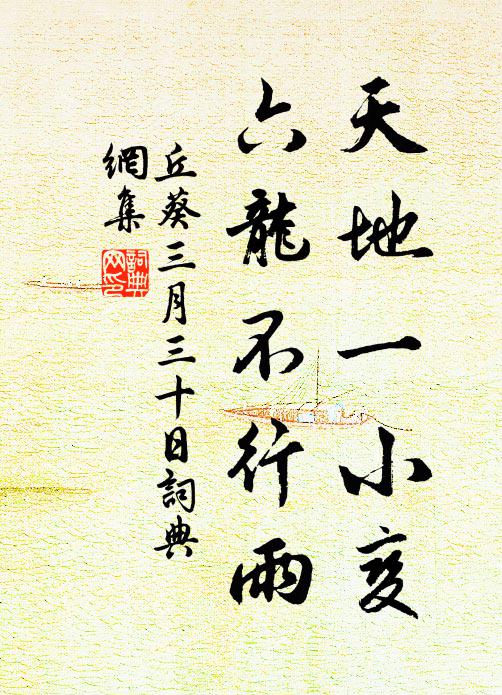 天地一小变
六龍不行雨
丘葵三月三十日詞典
網集
詞典
网印